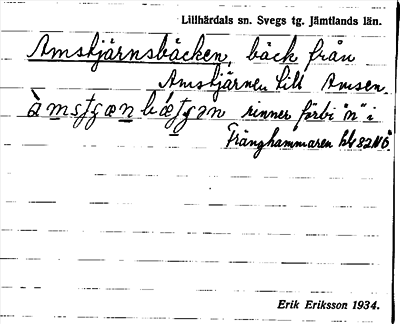 Lillhärdals sn. Svegs tg. Jämtlands län.
Amstjärnsbäcken, bäck från
Amstjärnen till Amsen.
rinner förbi "n" i
Tränghammaren
Erik Eriksson 1934.